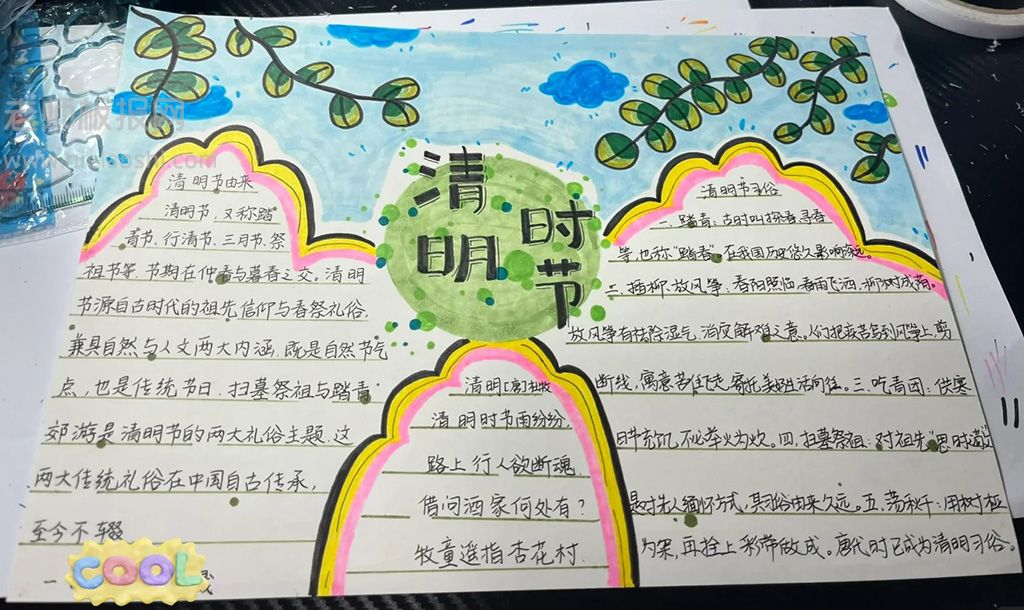 清明时节
清明节由来
清明节，又称踏
青节、行清节、三月节、祭
祖节等，节期在仲春与暮春之交。清明
节源自古时代的祖先信仰与春祭礼俗，
兼具自然与人文两大内涵，既是自然节气
点，也是传统节日，扫墓祭祖与踏青
郊游是清明节的两大礼俗主题，这
两大传统礼俗在中国自古传承，
至今不辍
清明[唐]杜牧
清明时节雨纷纷，
路上行人欲断魂
借问酒家何处有？
牧童遥指杏花村.
清明节习俗
一、踏青：古时叫探春、寻春
等也称“踏春”。在我国历史悠久影响深远。
二、插柳、放风筝、春阳照临，春雨飞洒，柳树成荫。
放风筝有祛除湿气，消灾解难之意。人们把疾苦写到风筝上剪
断线，寓意苦难飞走，寄托美好生活向往。三、吃青团：供寒
日节充饥，不必举火为炊。四、扫墓祭祖：对祖先“思时敬”
是对先人缅怀方式，其习俗由来久远。五、荡秋千：用树桠
为架，再拴上彩带做成。唐代时已成为清明习俗。
COOL
老师板报网